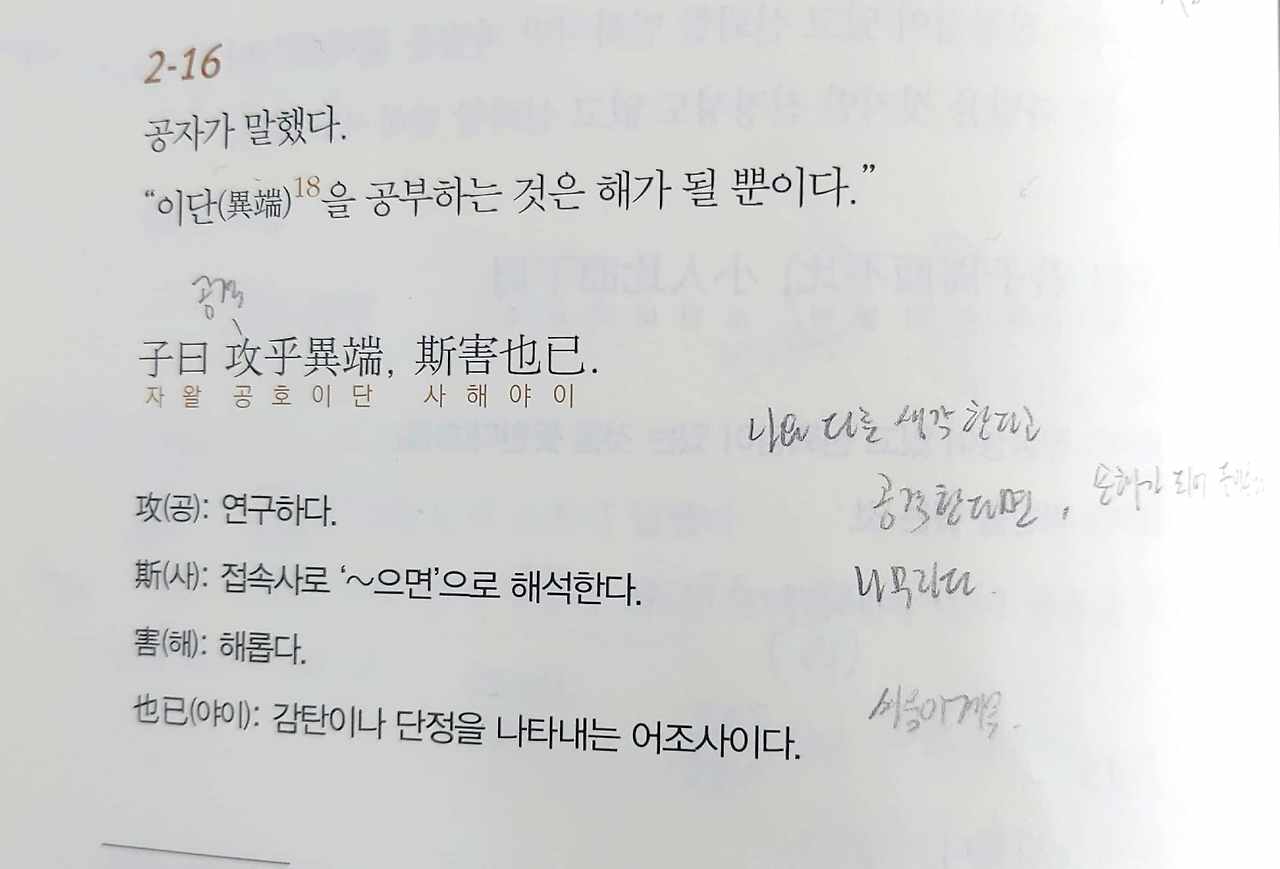 2-16
공자가 말했다.
“이단(異端)18을 공부하는 것은 해가 될 뿐이다.”
공격
子曰 攻乎異端, 斯害也已.
자 왈 공 호 이 단 사 해 야 이
나와 다른 생각 한다고
공격한다면, 손해가 되어
攻(공): 연구하다.
斯(사): 접속사로 ‘~으면’으로 해석한다.
害(해): 해롭다.
也已(야이): 감탄이나 단정을 나타내는 어조사이다.